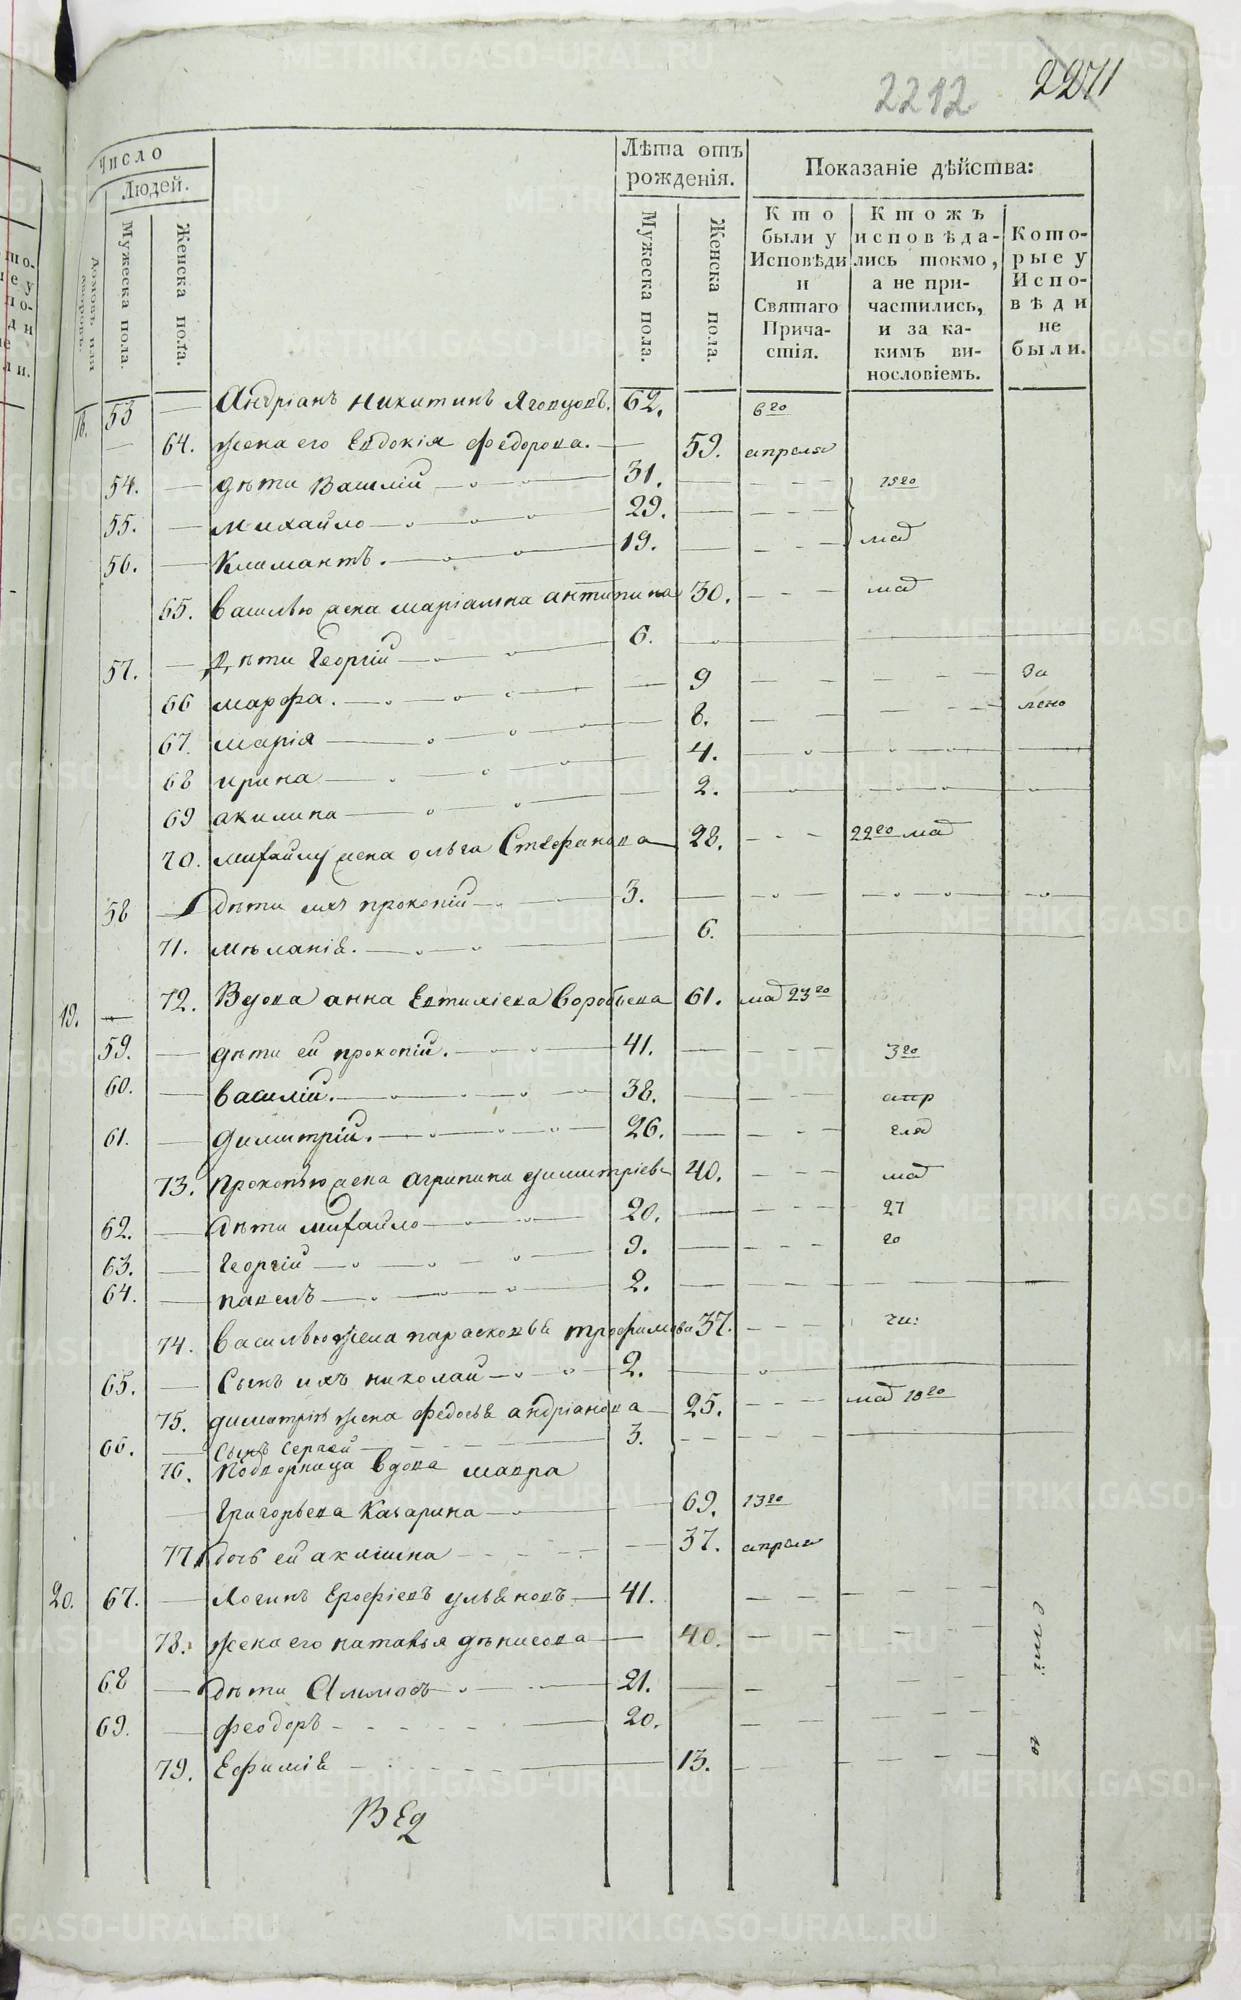 2212 2271
Число
Людей.
Домовъ или дворовъ.
Мужеска пола.
Женска пола.
Лѣта отъ рожденія.
Мужеска пола.
Женска пола.
Показаніе дѣйства:
Кто были у Исповѣди и Святаго Причастія.
Ктожъ исповѣдались токмо, а не причастились, и за какимъ винословіемъ.
Которые у Исповѣди не были.
53 Андріанъ Никитинъ 62. 6го
64. жена его Евдокія Федорова. 59. апреля
54. дѣти Василій 31. 15го
55. Михайло 29.
56. Климантъ. 19. маӀ
65. Василью жена Маріамна Антипина 30. маӀ
57. Дѣти Георгій 6.
66 Марфа. 9 За
67. Марія 8.
68 Ирина 4.
69 Акилина 2.
70. Михайлу жена Ольга Стефанова 28. 22го маӀ
58 дѣти ихъ Прокопій 3.
71. Мѣланія. 6.
19. 72. Вдова Анна Евтихіева Воробьева 61. маӀ 23го
59. дѣти ей Прокопій. 41. 3го
60. Василій. 38. апр
61. Димитрій. 26. еля
73. Прокопью жена Агрипина Димитріева 40. маӀ
62. дѣти Михайло 20. 27
63. Георгій 9. го
64. Павелъ 2.
74. Василью жена Парасковья Трофимова 37.
65. Сынъ ихъ Николай 2.
75. Димитрію жена Федосья Андріанова 25. маӀ 10го
66. Сынъ Сергей 3.
76. Подворница вдова Мавра
Григорьева Качарина 69. 13го
77. дочь ей Акилина 37. апреля
20. 67. Логинъ Ерофіевъ Ульяновъ 41.
78. жена его Наталья Дѣнисова 40.
68 дѣти Аммосъ 21.
69. Феодоръ 20.
79. Ефимія 13.
ВЕД